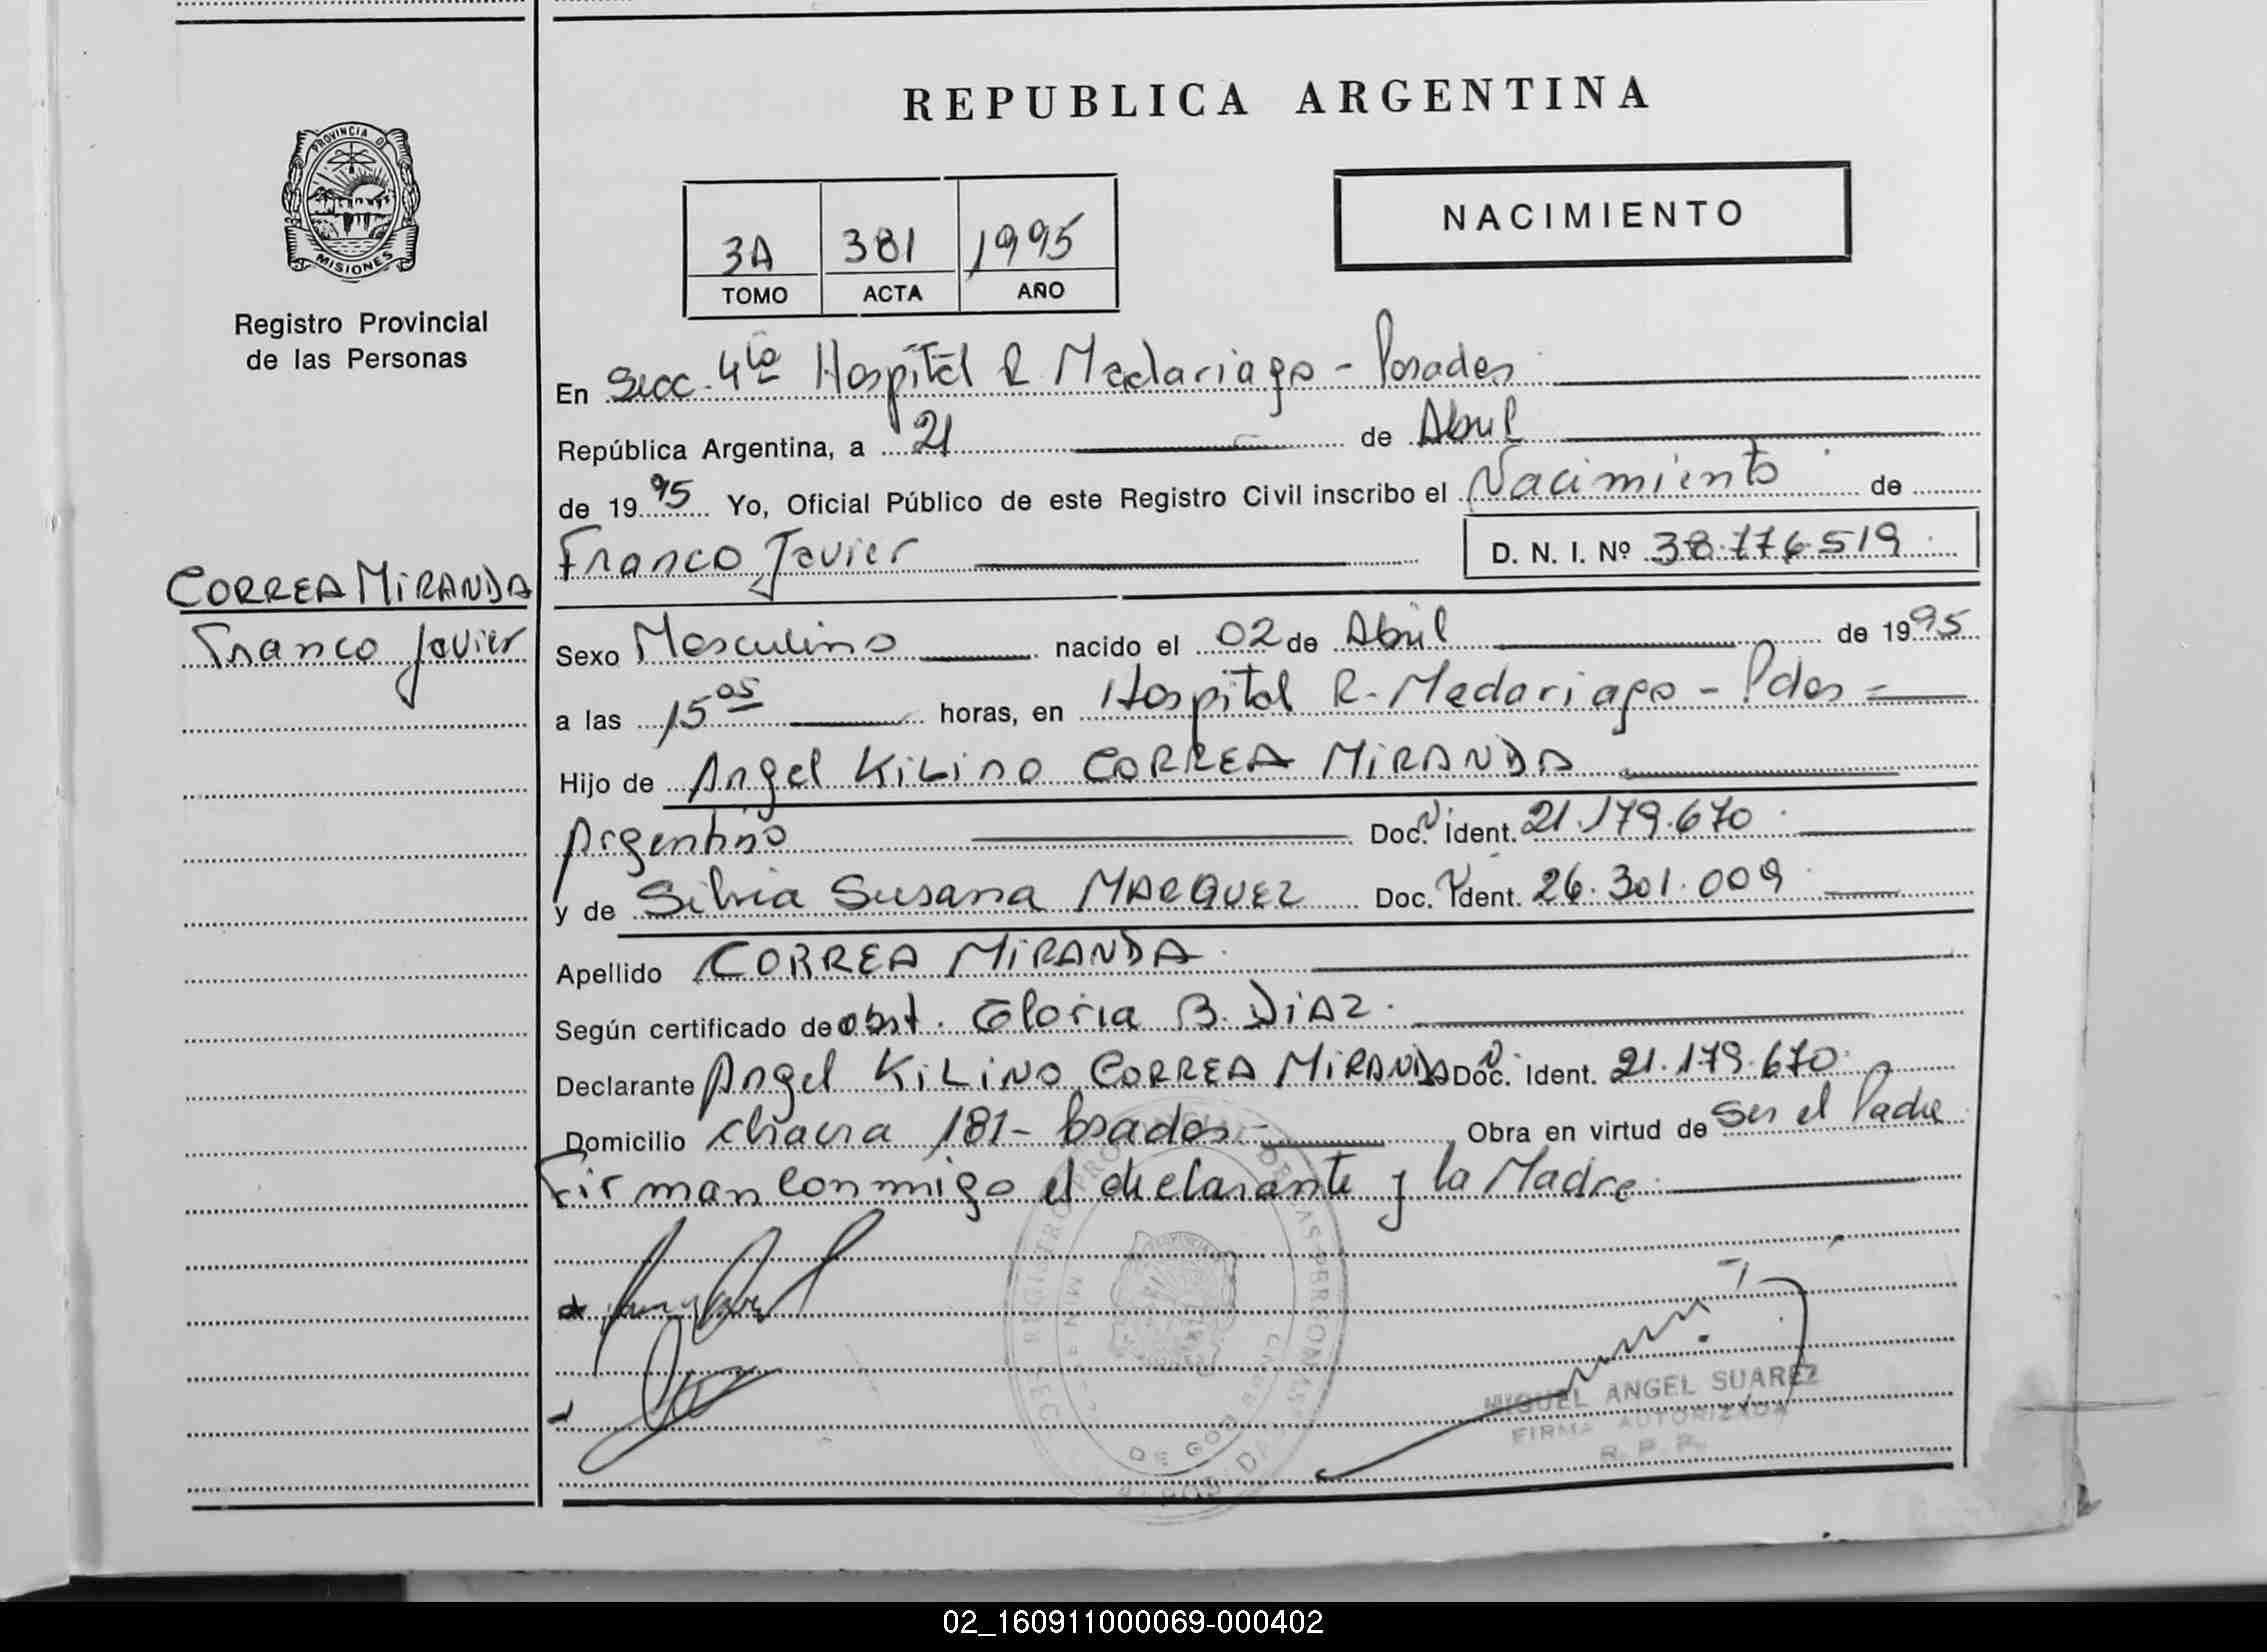 REPUBLICA ARGENTINA
PROVINCIA DE
MISIONES
Registro Provincial
de las Personas
NACIMIENTO
3A 381 1995
TOMO ACTA AÑO
En Secc. 4ta Hospital R. Madariaga - Posadas
República Argentina, a 21 de Abril
de 1995 Yo, Oficial Público de este Registro Civil inscribo el Nacimiento de
Franco Javier D. N. I. Nº 38.776.519
CORREA MIRANDA
Franco Javier
Sexo Masculino nacido el 02 de Abril de 1995
a las 15 05 horas, en Hospital R. Madariaga - Pdas
Hijo de Angel KILINO CORREA MIRANDA
Argentino Doc. Ident. 21.179.670
y de Silvia Susana MARQUEZ Doc. Ident. 26.301.009
Apellido CORREA MIRANDA
Según certificado de obst. Gloria B. DIAZ.
Declarante Angel KILINO CORREA MIRANDA Doc. Ident. 21.179.670
Domicilio chacra 181 - Posadas - Obra en virtud de ser el Padre
Firman conmigo el declarante y la Madre.
MIGUEL ANGEL SUAREZ
FIRMA AUTORIZADA
R. P. P.
02_160911000069-000402